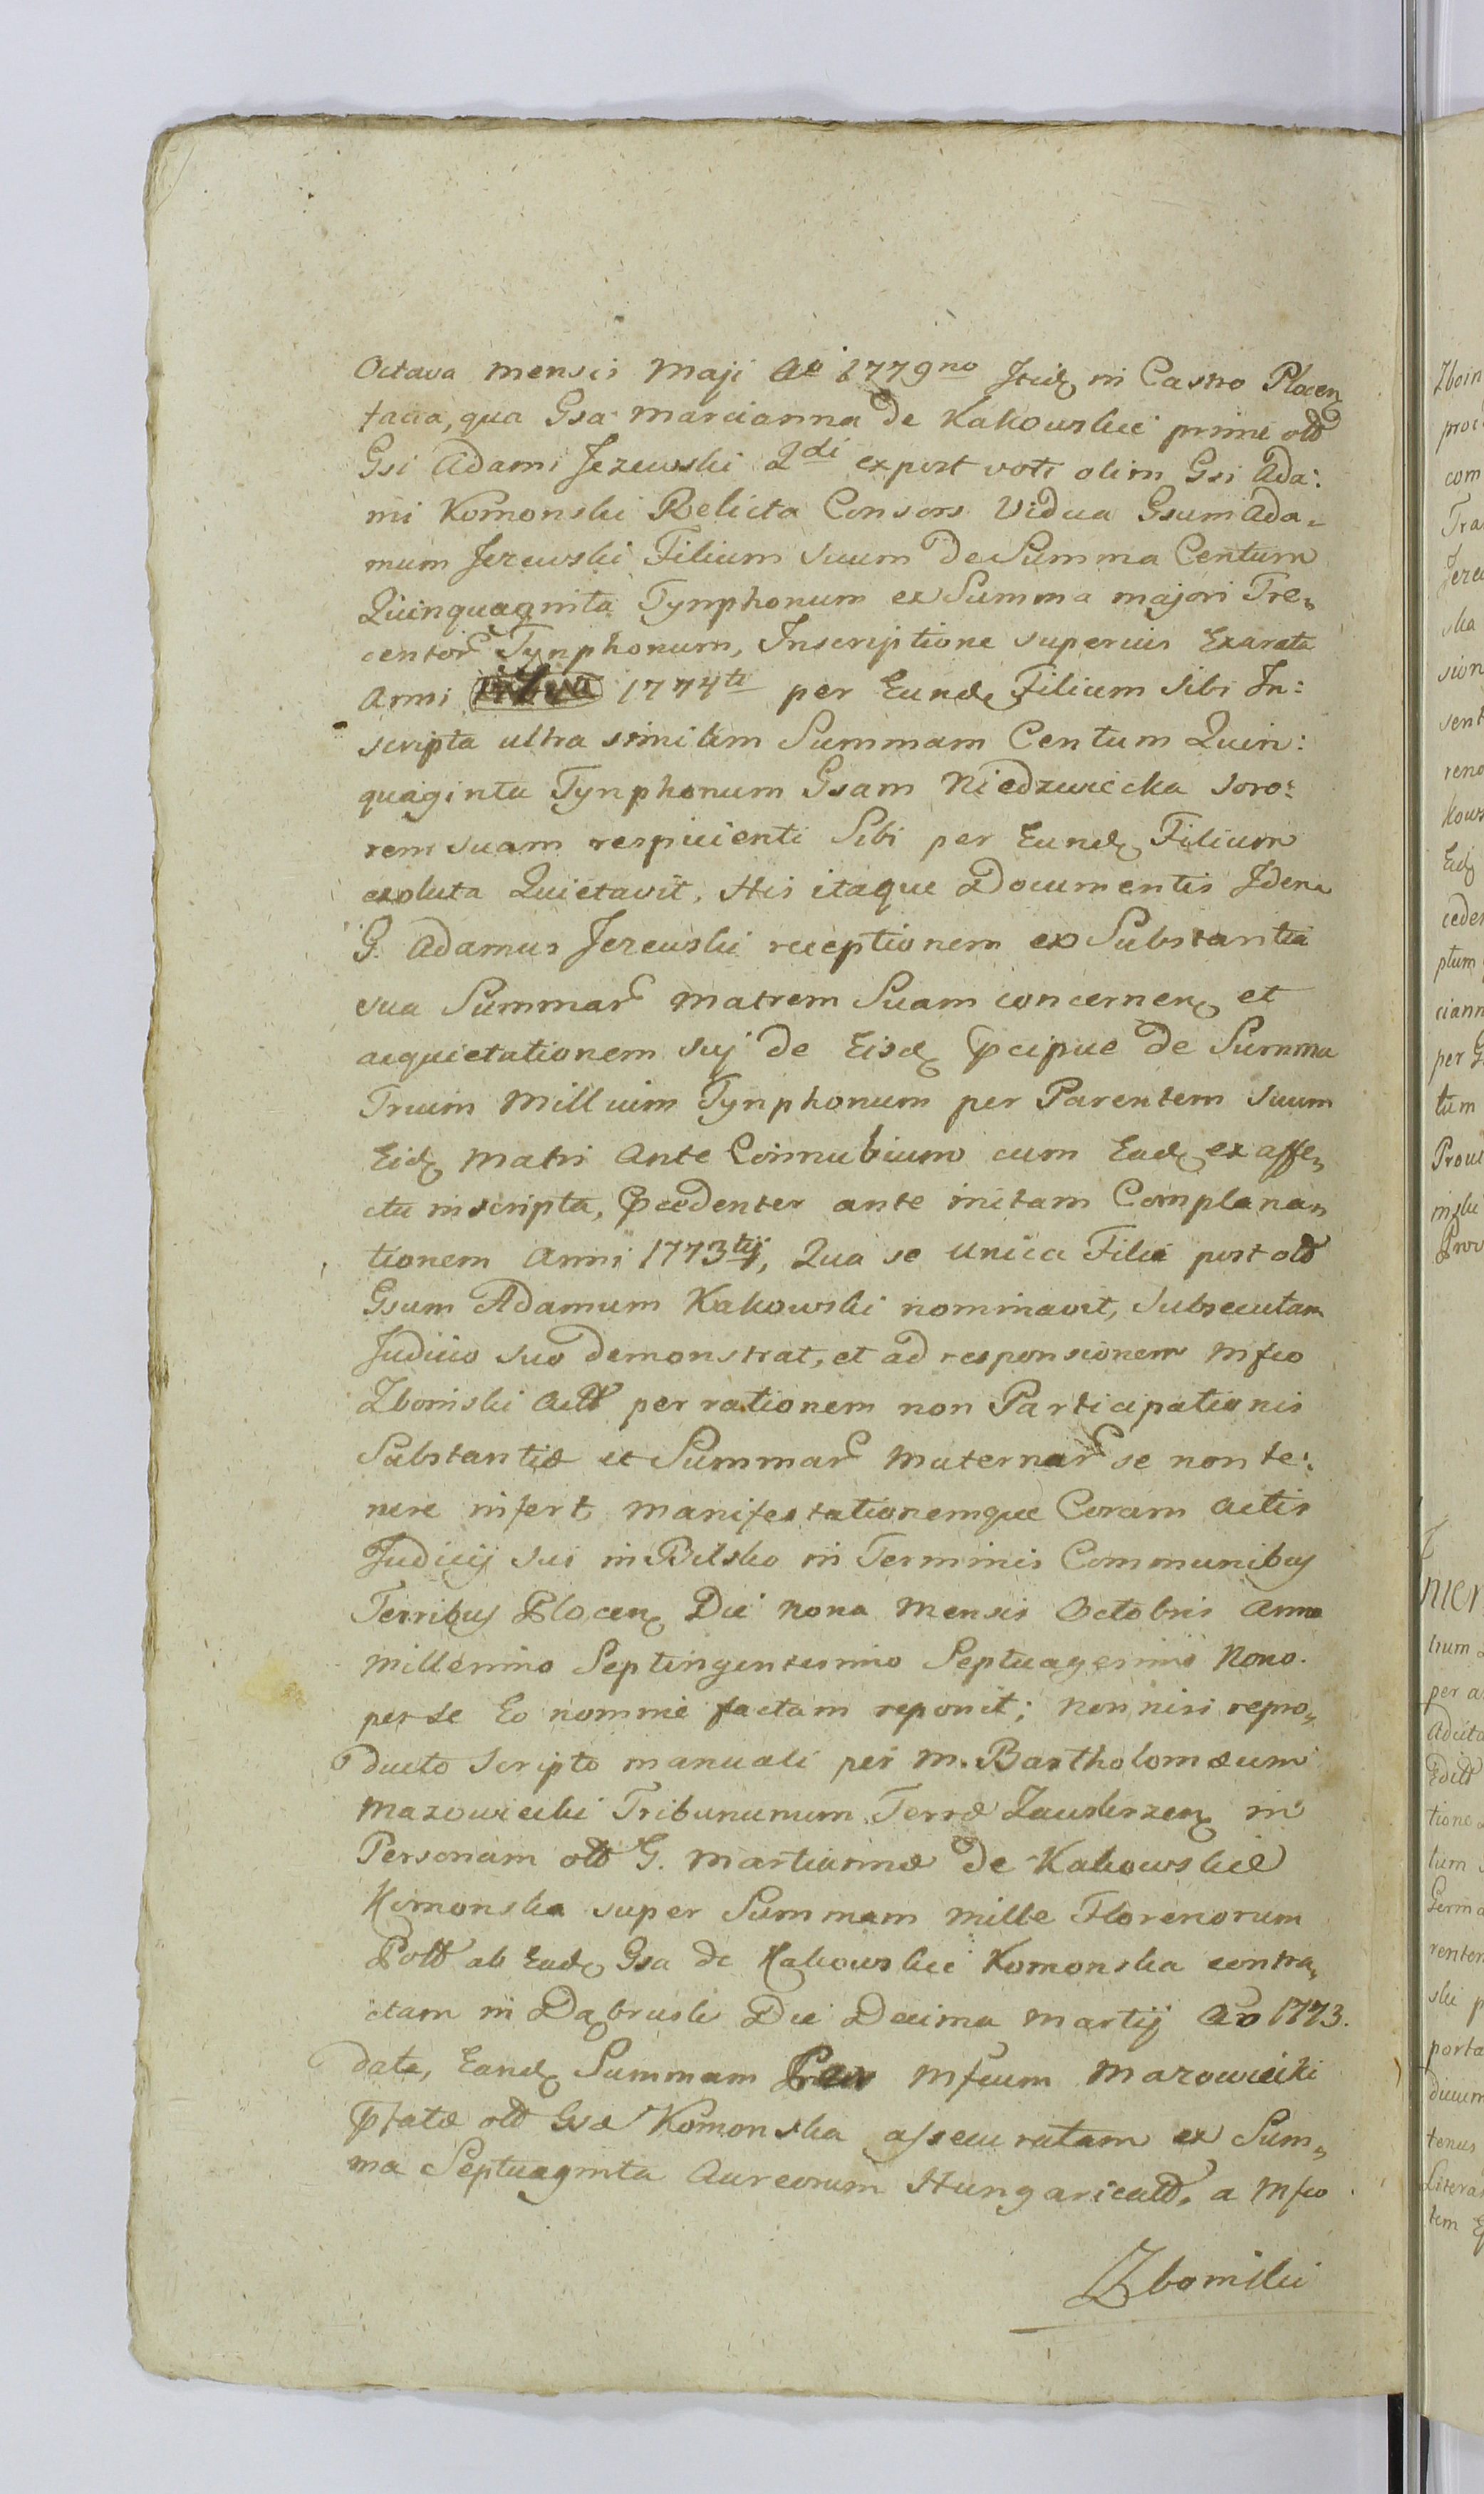 Octava mensis Maji Ao 1779no Itid in Castro Plocen
facta, qua Gsa Marcianna de Kakowskie primi old
Gsi Adami Jezewski 2di expost voti olim Gsi Ada:
mi Komonski Relicta Consors Vidua Gsum Ada-
mum Jezewski Filium suum de Summa Centum
Quinquaginta Tynphonum ex Summa majori Tre-
centor Tynphonum, Inscriptione superius Exarata
Anni 1774ti per Eund Filium Sibi In:
scripta ultra similem Summam Centum Quin:
quaginta Tynphonum Gsam Niedzwiecka Soro:
rem suam respicienti Sibi per Eund Filium
exoluta Quietavit, His itaque Documentis Idem
G. Adamus Jezewski receptionem ex Substantia
sua Summar Matrem Suam concernen et
acquietationem suj de Eisd pcipue de Summa
Trium Millium Tynphonum per Parentem Suum
Eid Matri Ante Connubium cum Ead ex affe-
ctu inscripta, Pcedenter ante initam Complana-
tionem Anni 1773tij, Qua se unica Filia post old
Gsum Adamum Kakowski nominavit, subsecutam
Judicio suo demonstrat, et ad responsionem Mfco
Zboinski Actt per rationem non Participationis
Substantiæ et Summar Maternar se non te:
nere infert, Manifestationemque Coram Actis
Judicij sui in Bielsko in Terminis Communibus
Terribus Plocen Die Nona Mensis Octobris Anno
Millesimo Septingentesimo Septuagesimo Nono.
per se Eo nomine factam reponit; Non nisi repro-
ducto Scripto manuali per M. Bartholomæum
Mazowiecki Tribununum Terræ Zawskrzen in
Personam old G. Martiannæ de Kakowskie
Komonska super Summam mille Florenorum
Poll ab Ead Gsa de Kakowskie Komonska contra-
ctam in Dąbrusk Die Decima Martij Ao 1773.
data, Eand Summam Per Mfcum Mazowiecki
Pfatæ old Gsæ Komonska assecuratam ex Sum-
ma Septuaginta Aureorum Hungaricall, a Mfco
Zboinski